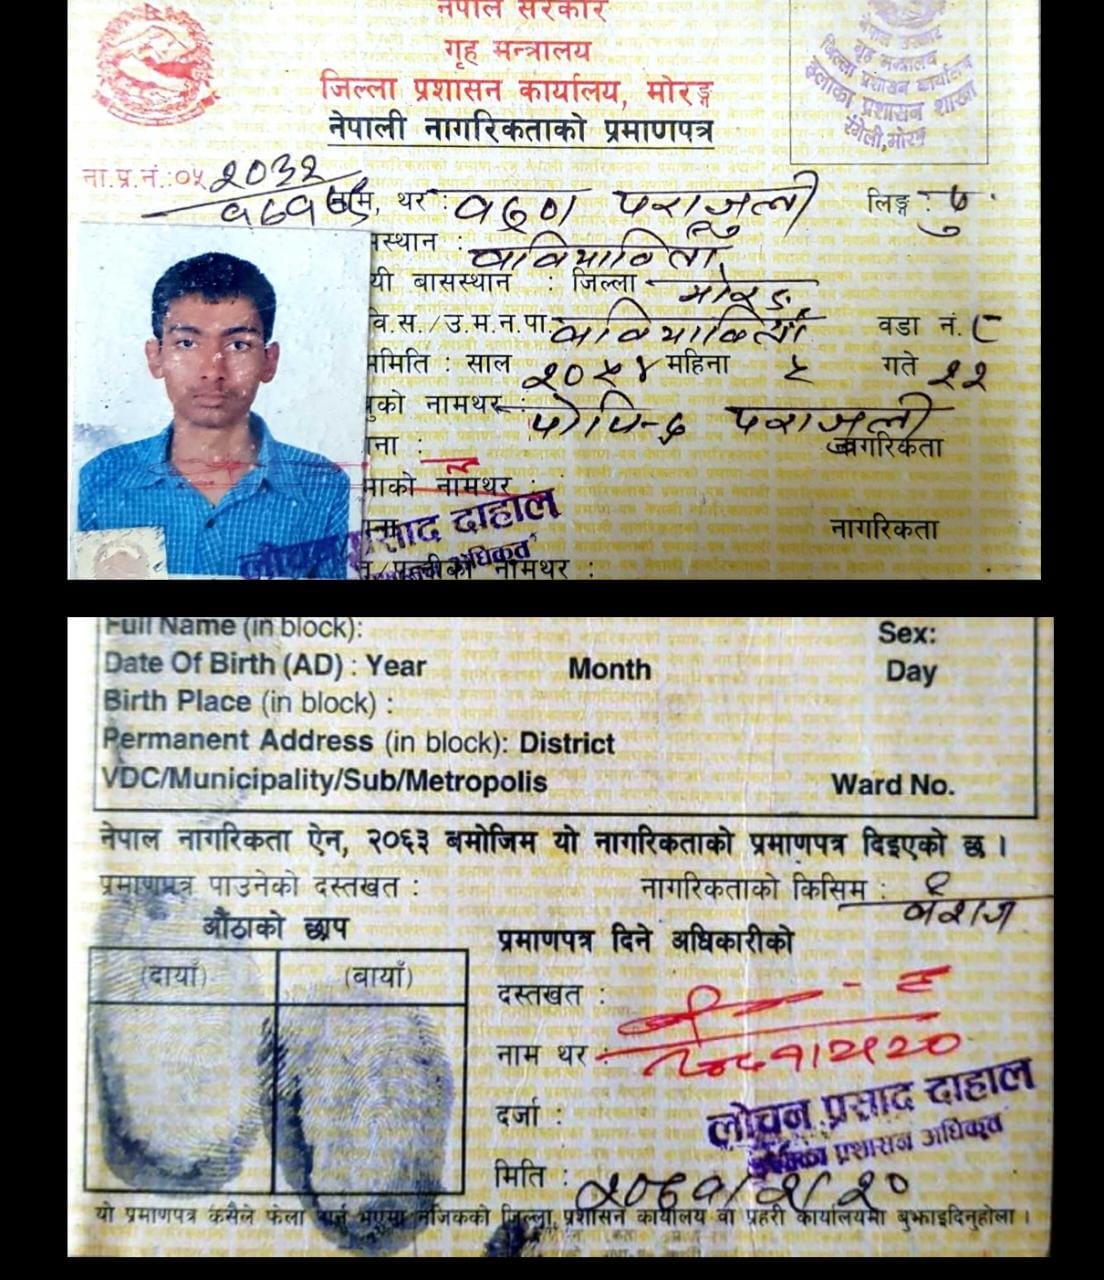 नेपाल सरकार
गृह मन्त्रालय
जिल्ला प्रशासन कार्यालय, मोरङ्ग
नेपाली नागरिकताको प्रमाणपत्र
नेपाल सरकार
गृह मन्त्रालय
जिल्ला प्रशासन कार्यालय
इलाका प्रशासन शाखा
रंगेली, मोरङ
ना.प्र.नं.:०५२०३२
थर : पराजुली लिङ्ग : पु
स्थान :
यी बासस्थान : जिल्ला मोरङ
वि.स./उ.म.न.पा. वडा नं. ८
मिति : साल २०५४ महिना ५ गते २२
को नामथर पराजुली
ना : नागरिकता
माको नामथर :
नागरिकता
लोचन प्रसाद दाहाल
अधिकृत
पत्नीको नामथर :
Full Name (in block): Sex:
Date Of Birth (AD) : Year Month Day
Birth Place (in block) :
Permanent Address (in block): District
VDC/Municipality/Sub/Metropolis Ward No.
नेपाल नागरिकता ऐन, २०६३ बमोजिम यो नागरिकताको प्रमाणपत्र दिइएको छ ।
प्रमाणपत्र पाउनेको दस्तखत : नागरिकताको किसिम : वंशज
औंठाको छाप
(दायाँ) (बायाँ)
प्रमाणपत्र दिने अधिकारीको
दस्तखत :
नाम थर :
दर्जा :
लोचन प्रसाद दाहाल
इलाका प्रशासन अधिकृत
मिति :
यो प्रमाणपत्र कसैले फेला पार्नु भएमा नजिकको जिल्ला प्रशासन कार्यालय वा प्रहरी कार्यालयमा बुझाइदिनुहोला ।